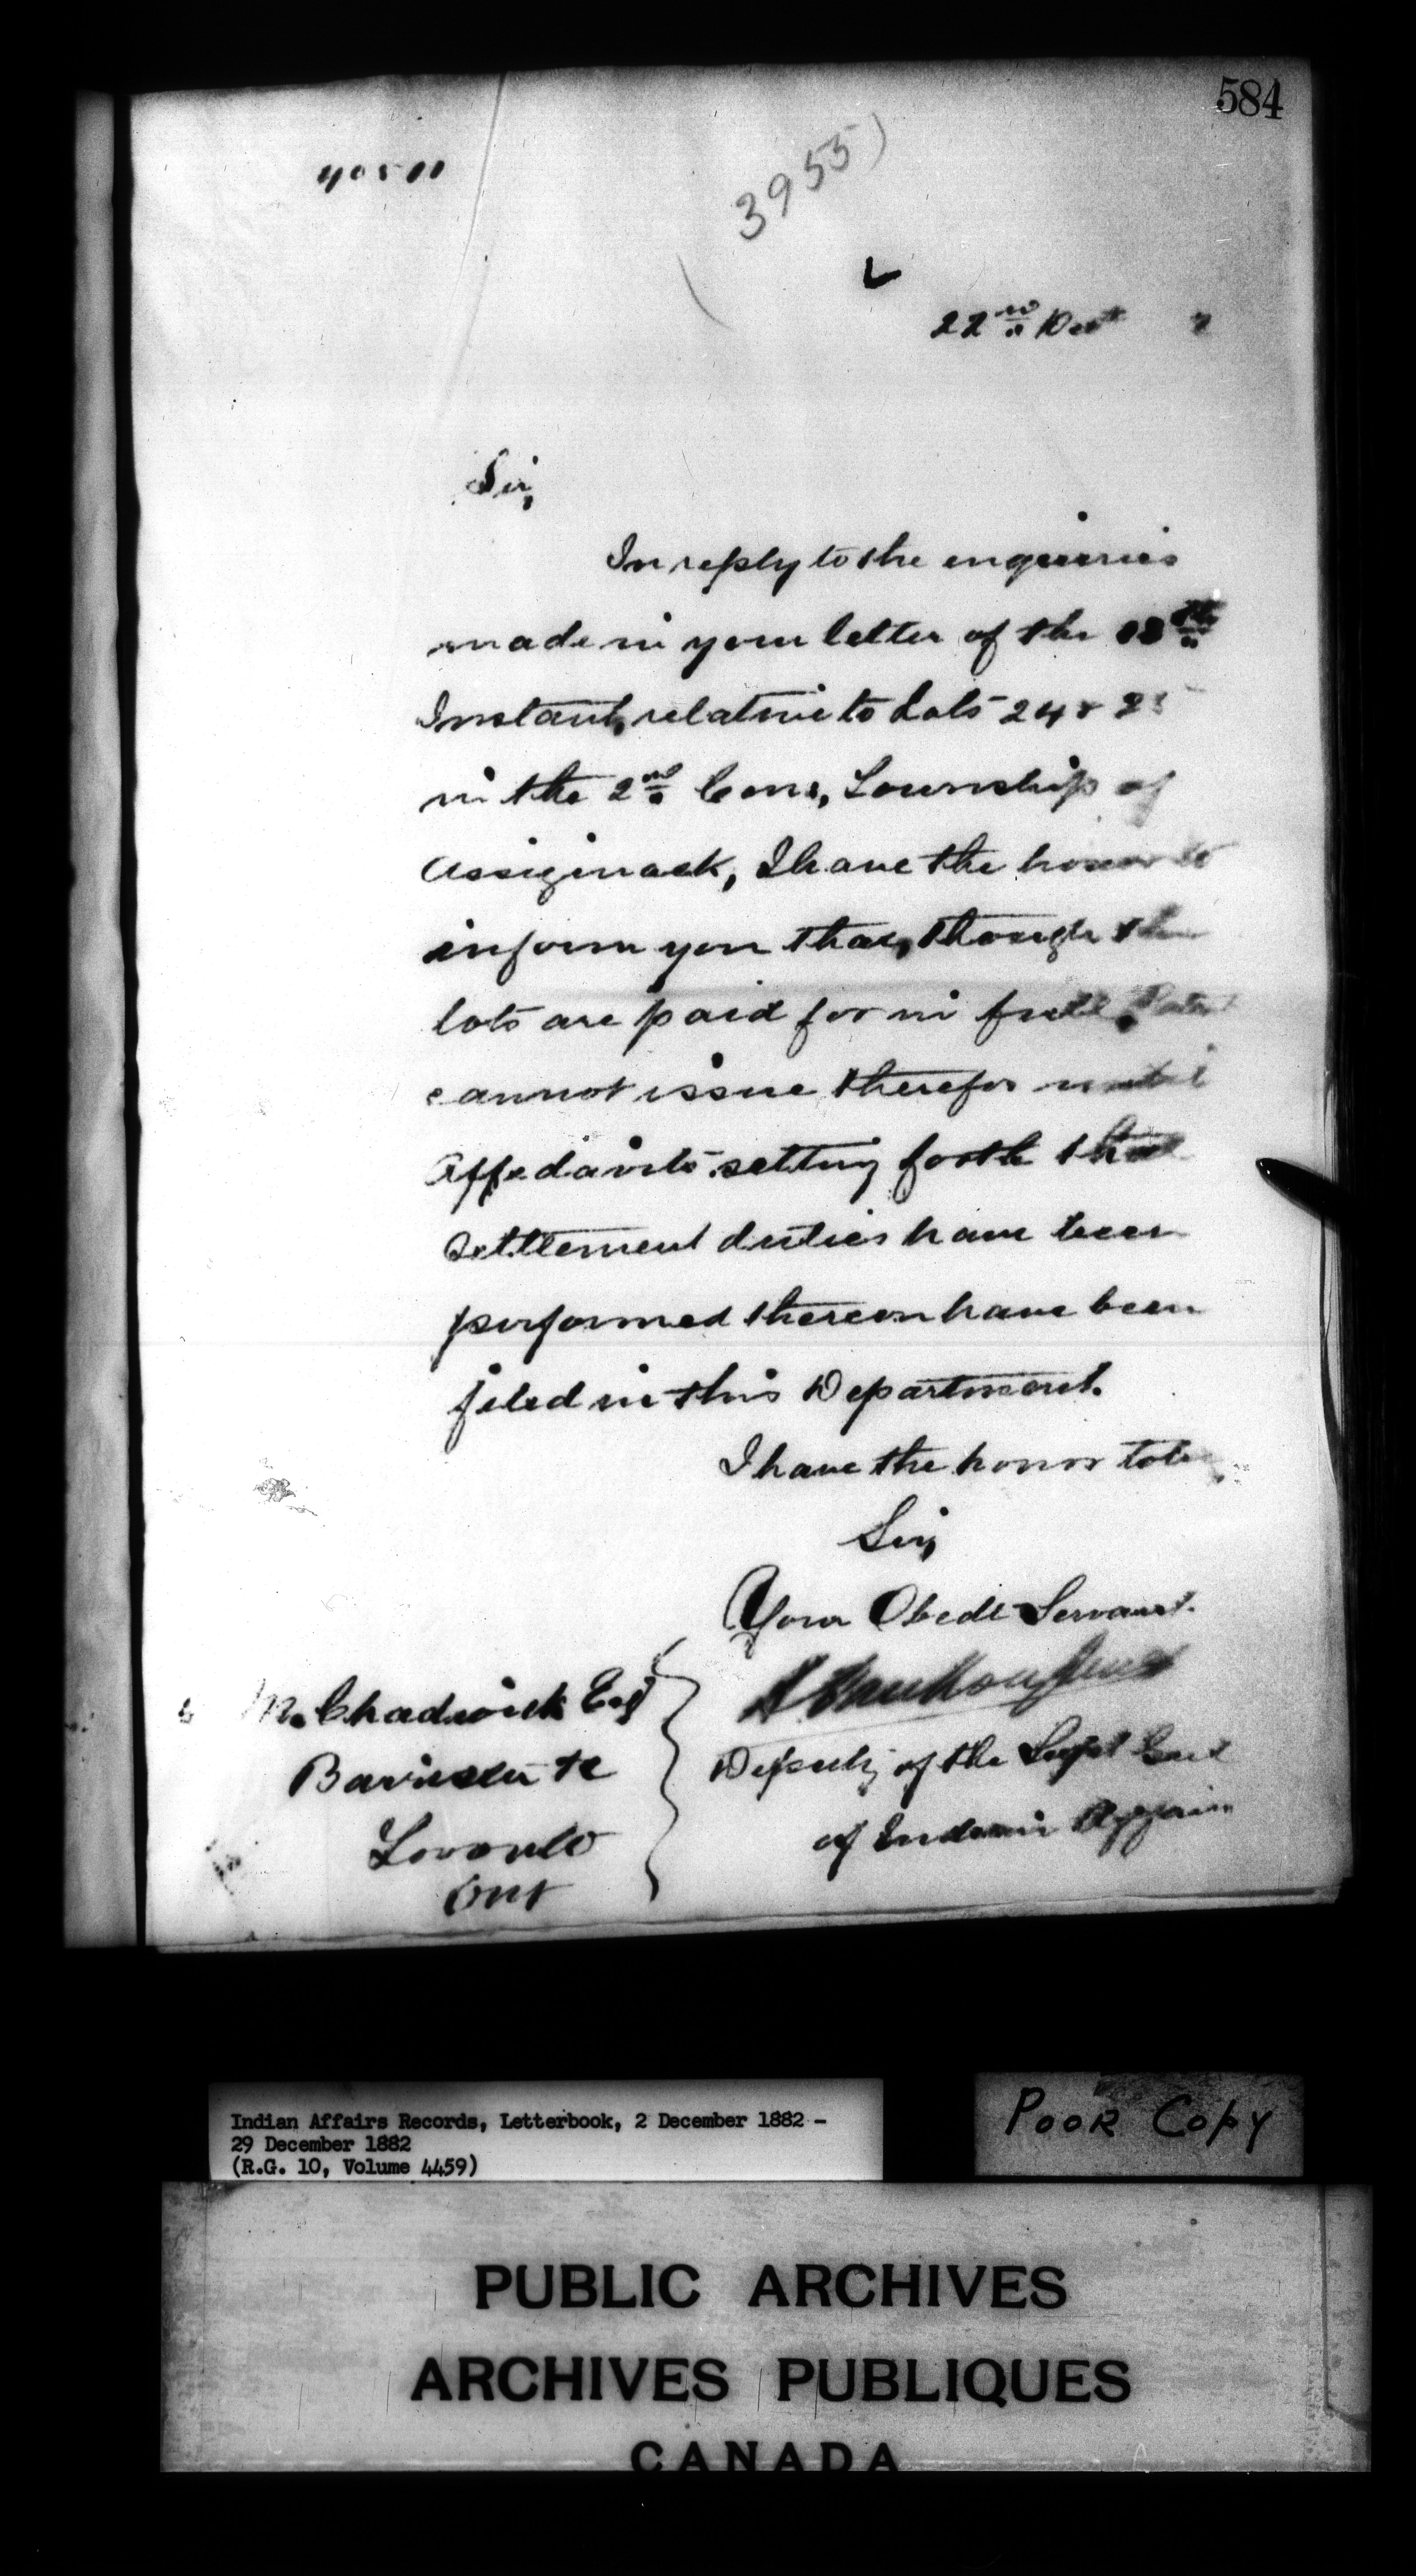 584
40511
3955
22nd Dec 2
Sir,
In reply to the enquiries
made in your letter of the 18th
Instant, relative to Lots 24 &
in the 2nd Conn, Township of
Assiginack, I have the honor to
inform you that, though the
lots are paid for in full, Patent
cannot issue therefor until
Affidavits setting forth that
Settlement duties have been
performed thereon have been
filed in this Department.
I have the honor to be
Sir,
Your Obedt Servant.
L VanKoughnet
Deputy of the Supt Genl
of Indian Affairs
M. Chadwick Esq
Barrister &c
Toronto
Ont
Indian Affairs Records, Letterbook, 2 December 1882 -
29 December 1882
(R.G. 10, Volume 4459)
POOR COPY
PUBLIC ARCHIVES
ARCHIVES PUBLIQUES
CANADA